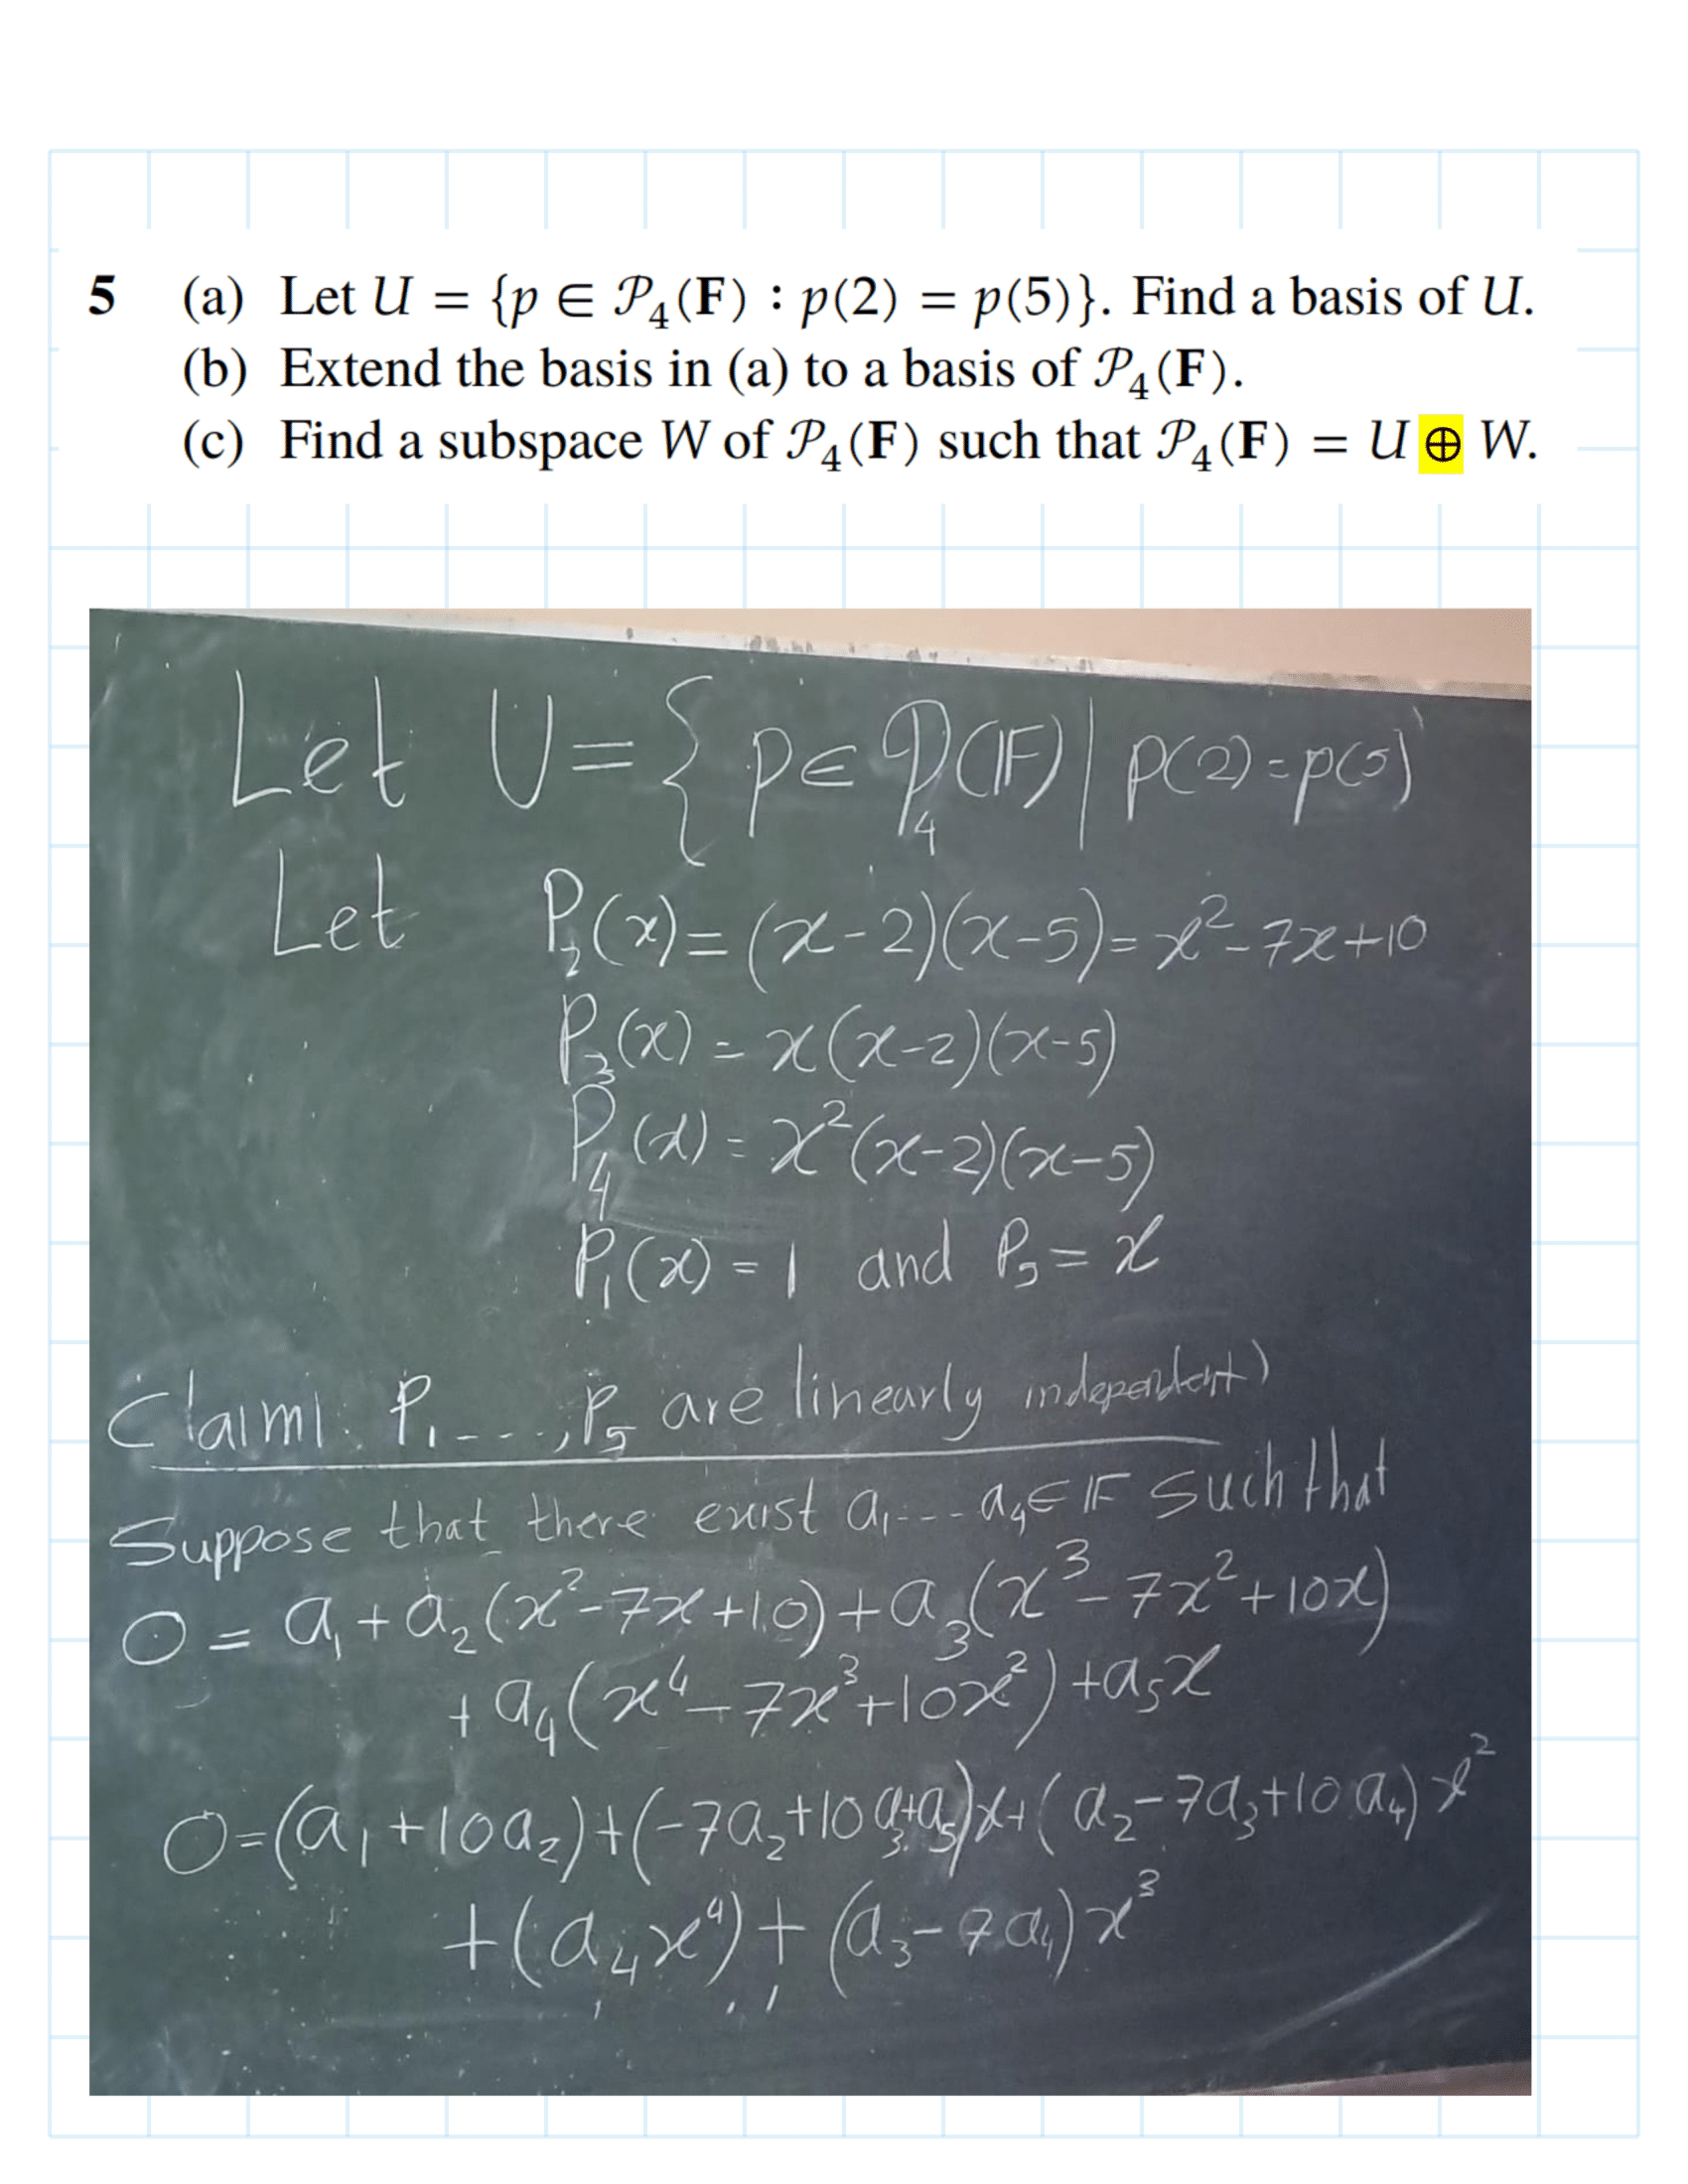 5 (a) Let U = {p ∈ 𝒫₄(F) : p(2) = p(5)}. Find a basis of U.
(b) Extend the basis in (a) to a basis of 𝒫₄(F).
(c) Find a subspace W of 𝒫₄(F) such that 𝒫₄(F) = U ⊕ W.
Let U = { p ∈ 𝒫₄(𝔽) | p(2) = p(5)
Let P₂(x) = (x-2)(x-5) = x²-7x+10
P₃(x) = x(x-2)(x-5)
P₄(x) = x²(x-2)(x-5)
P₁(x) = 1 and P₅ = x
Claim1: P₁---,P₅ are linearly independent)
Suppose that there exist a₁---a₄ ∈ 𝔽 such that
0 = a₁ + a₂(x²-7x+10) + a₃(x³-7x²+10x)
+ a₄(x⁴-7x³+10x²) + a₅x
0 = (a₁+10a₂) + (-7a₂+10a₃+a₅)x + (a₂-7a₃+10a₄)x²
+ (a₄x⁴) + (a₃-7a₄)x³